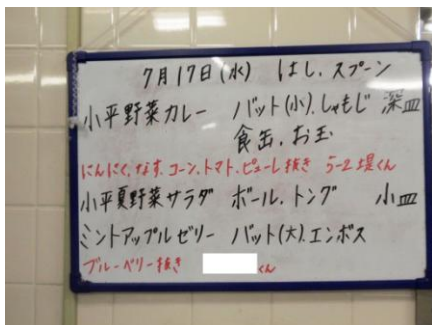 7月17日(水) はし、スプーン
小平野菜カレー バット(小)、しゃもじ 深皿
食缶、お玉
にんにく、なす、コーン、トマト、ピューレ抜き 5-2 堤くん
小平夏野菜サラダ ボール、トング 小皿
ミントアップルゼリー バット(大)、エンボス
ブルーベリー抜き くん